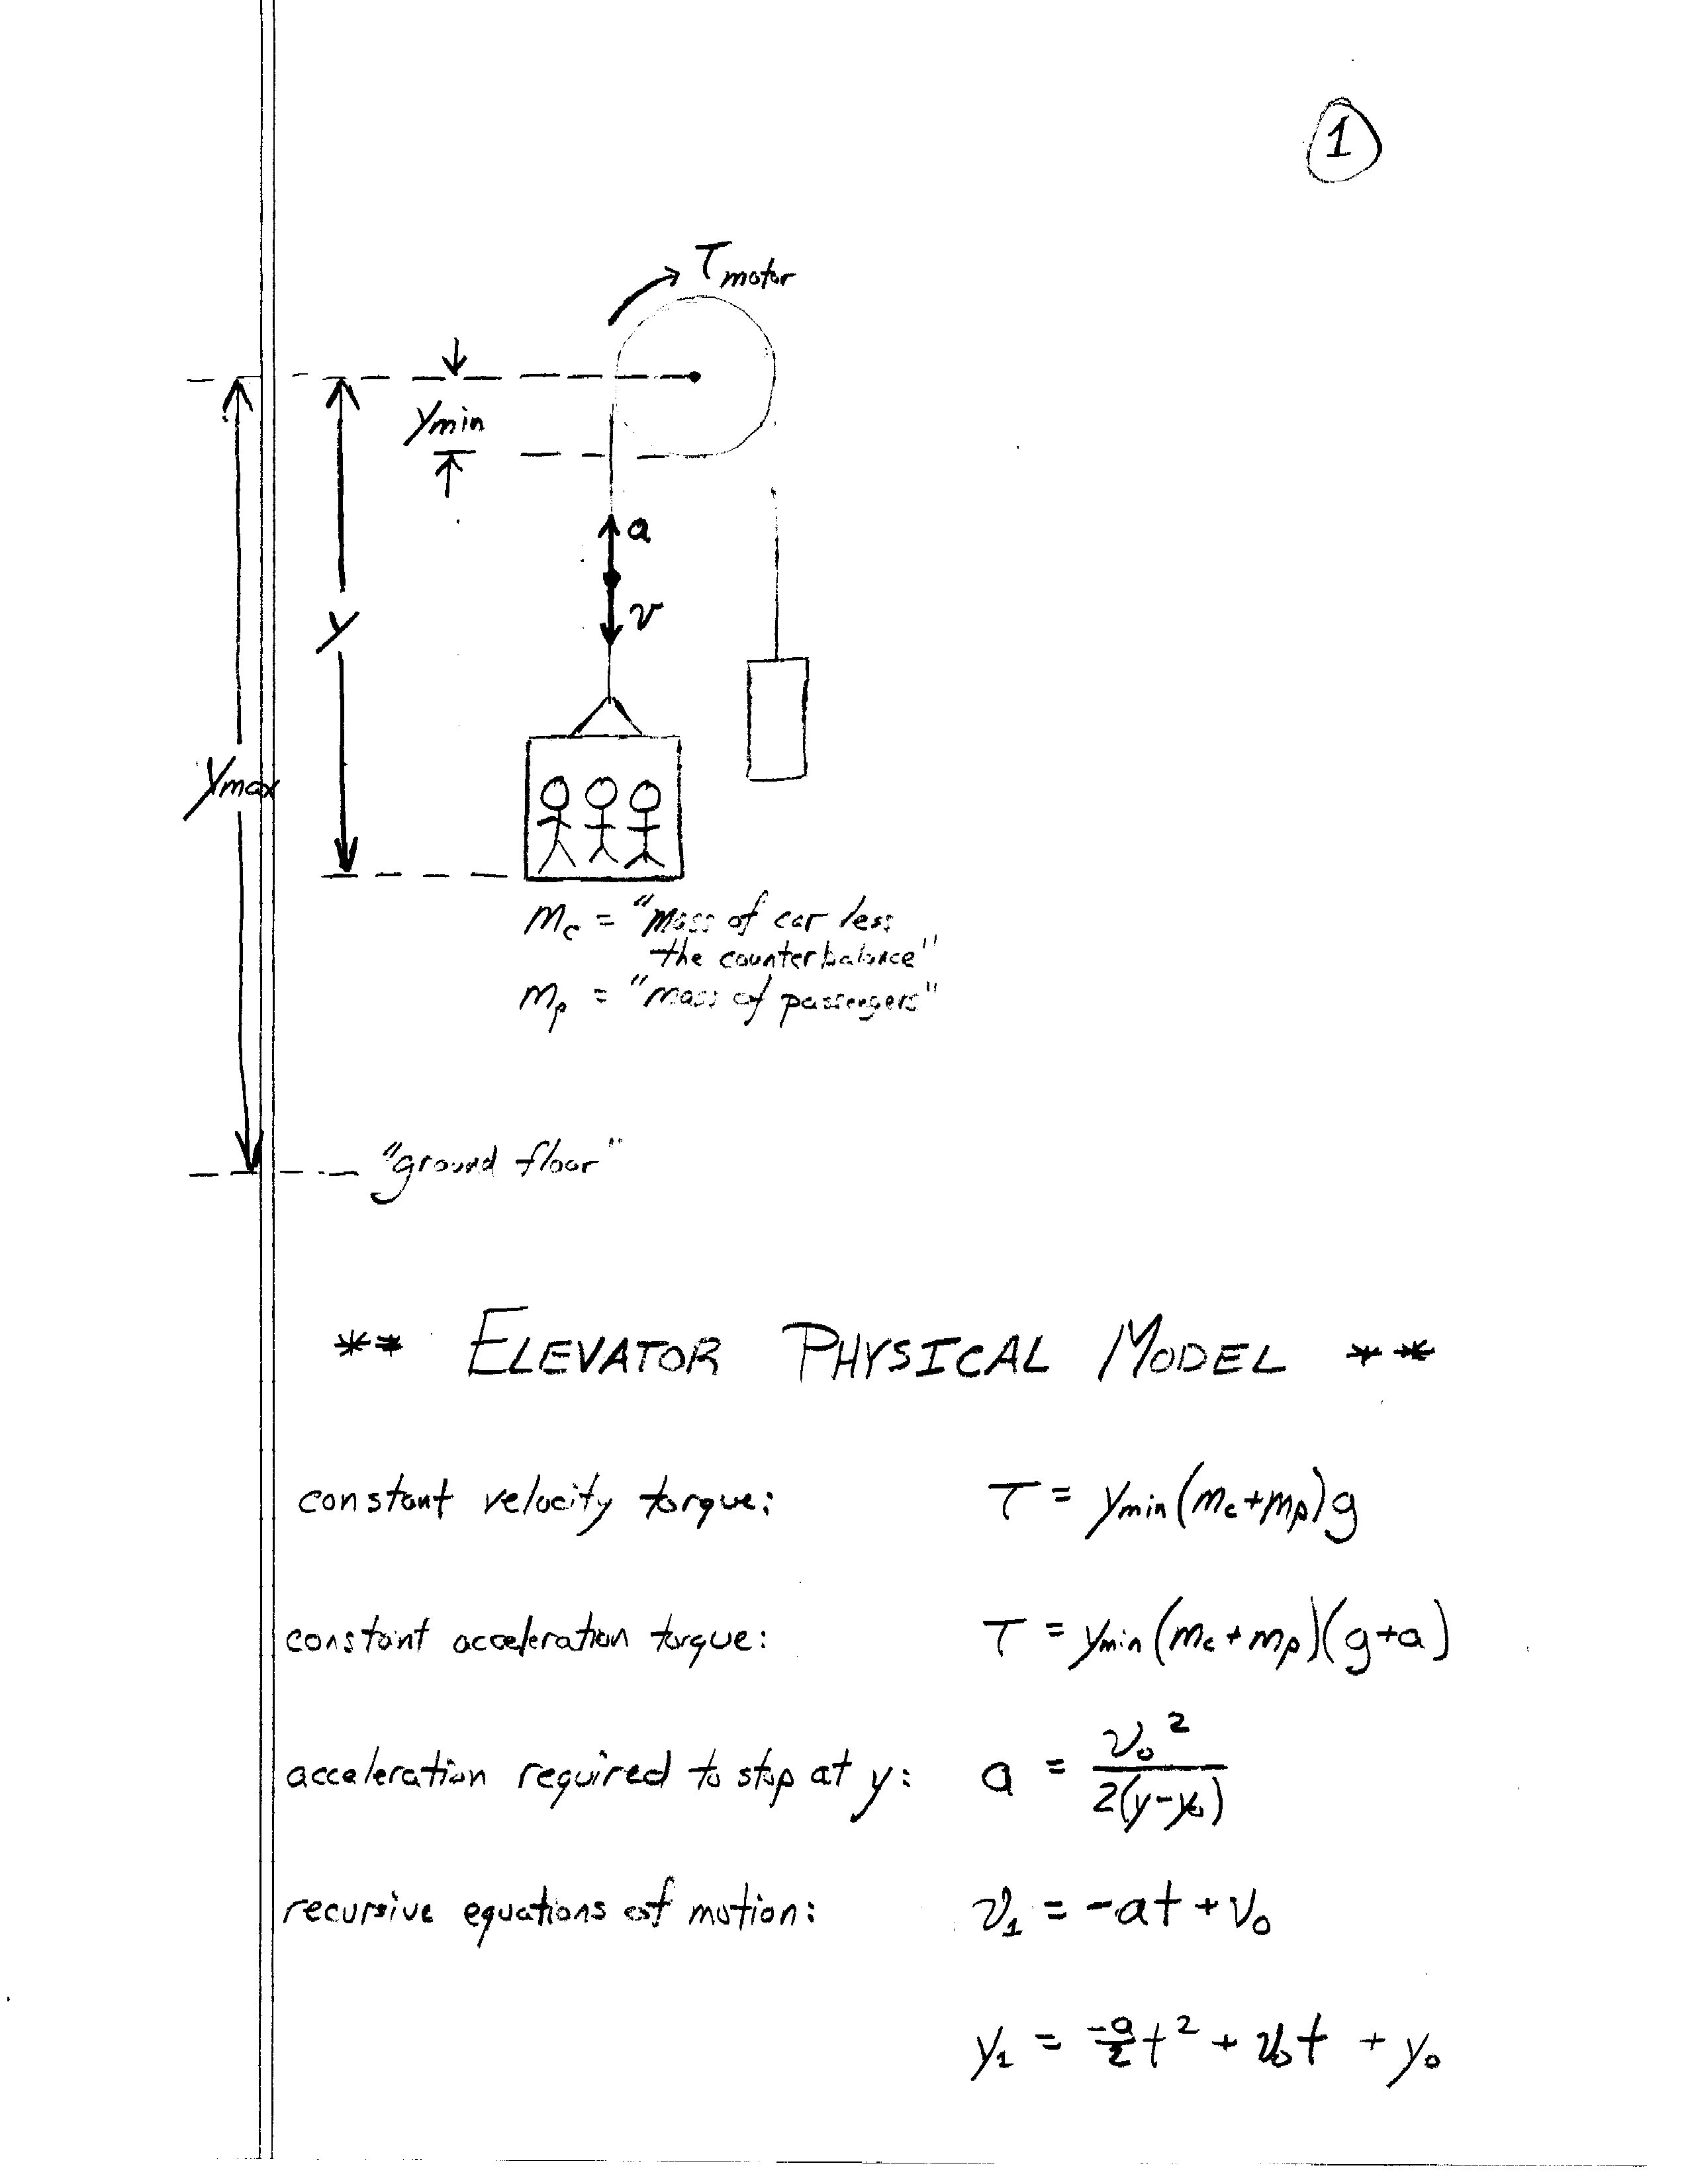 1
τmotor
ymin
a
v
y
ymax
mc = "mass of car less
the counterbalance"
mp = "mass of passengers"
"ground floor"
** ELEVATOR PHYSICAL MODEL **
constant velocity torque: τ = ymin(mc+mp)g
constant acceleration torque: τ = ymin(mc+mp)(g+a)
acceleration required to stop at y: a = v₀²/2(y-y₀)
recursive equations of motion: v₁ = -at + v₀
y₁ = -a/2 t² + v₀t + y₀